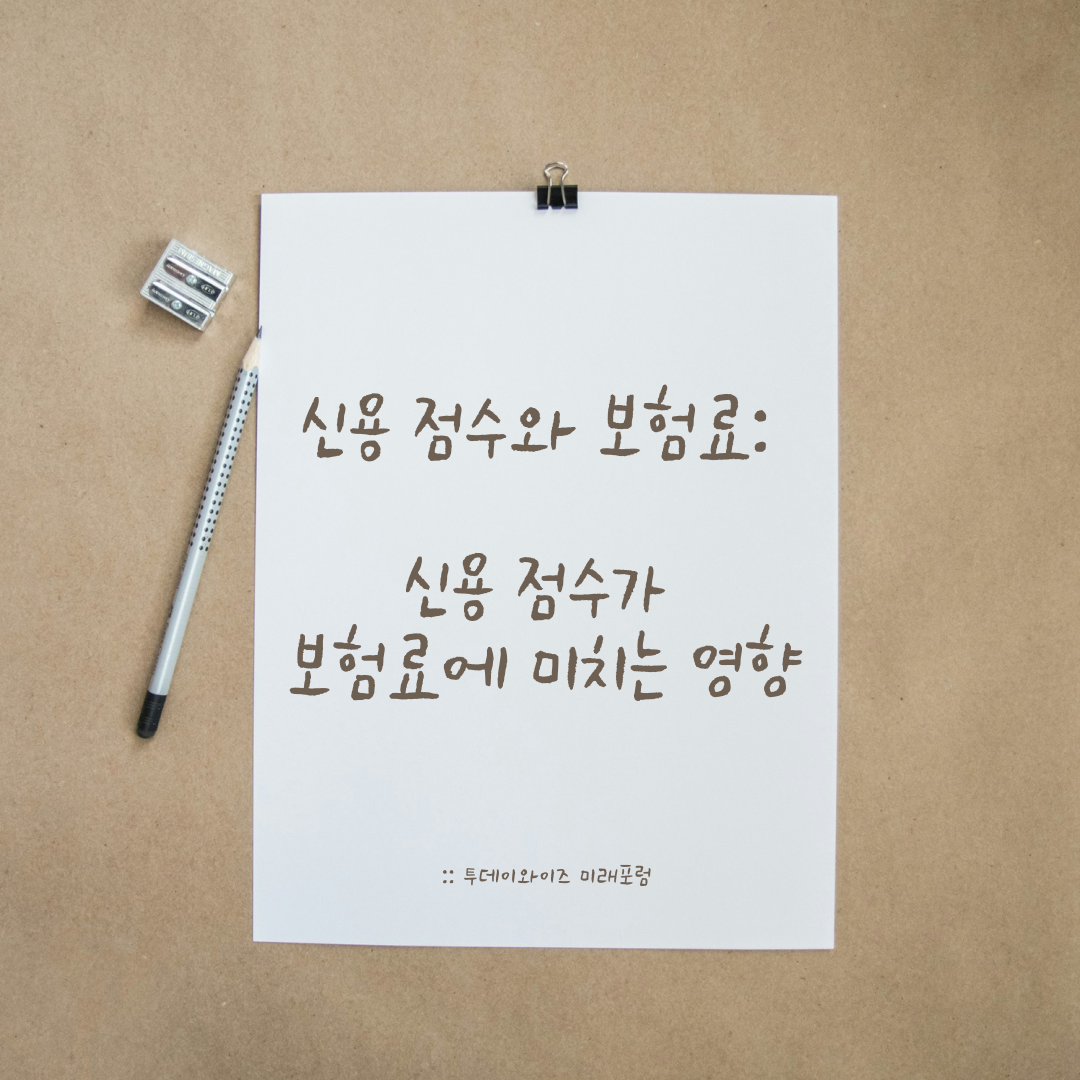 신용 점수와 보험료:
신용 점수가
보험료에 미치는 영향
:: 투데이와이즈 미래포럼